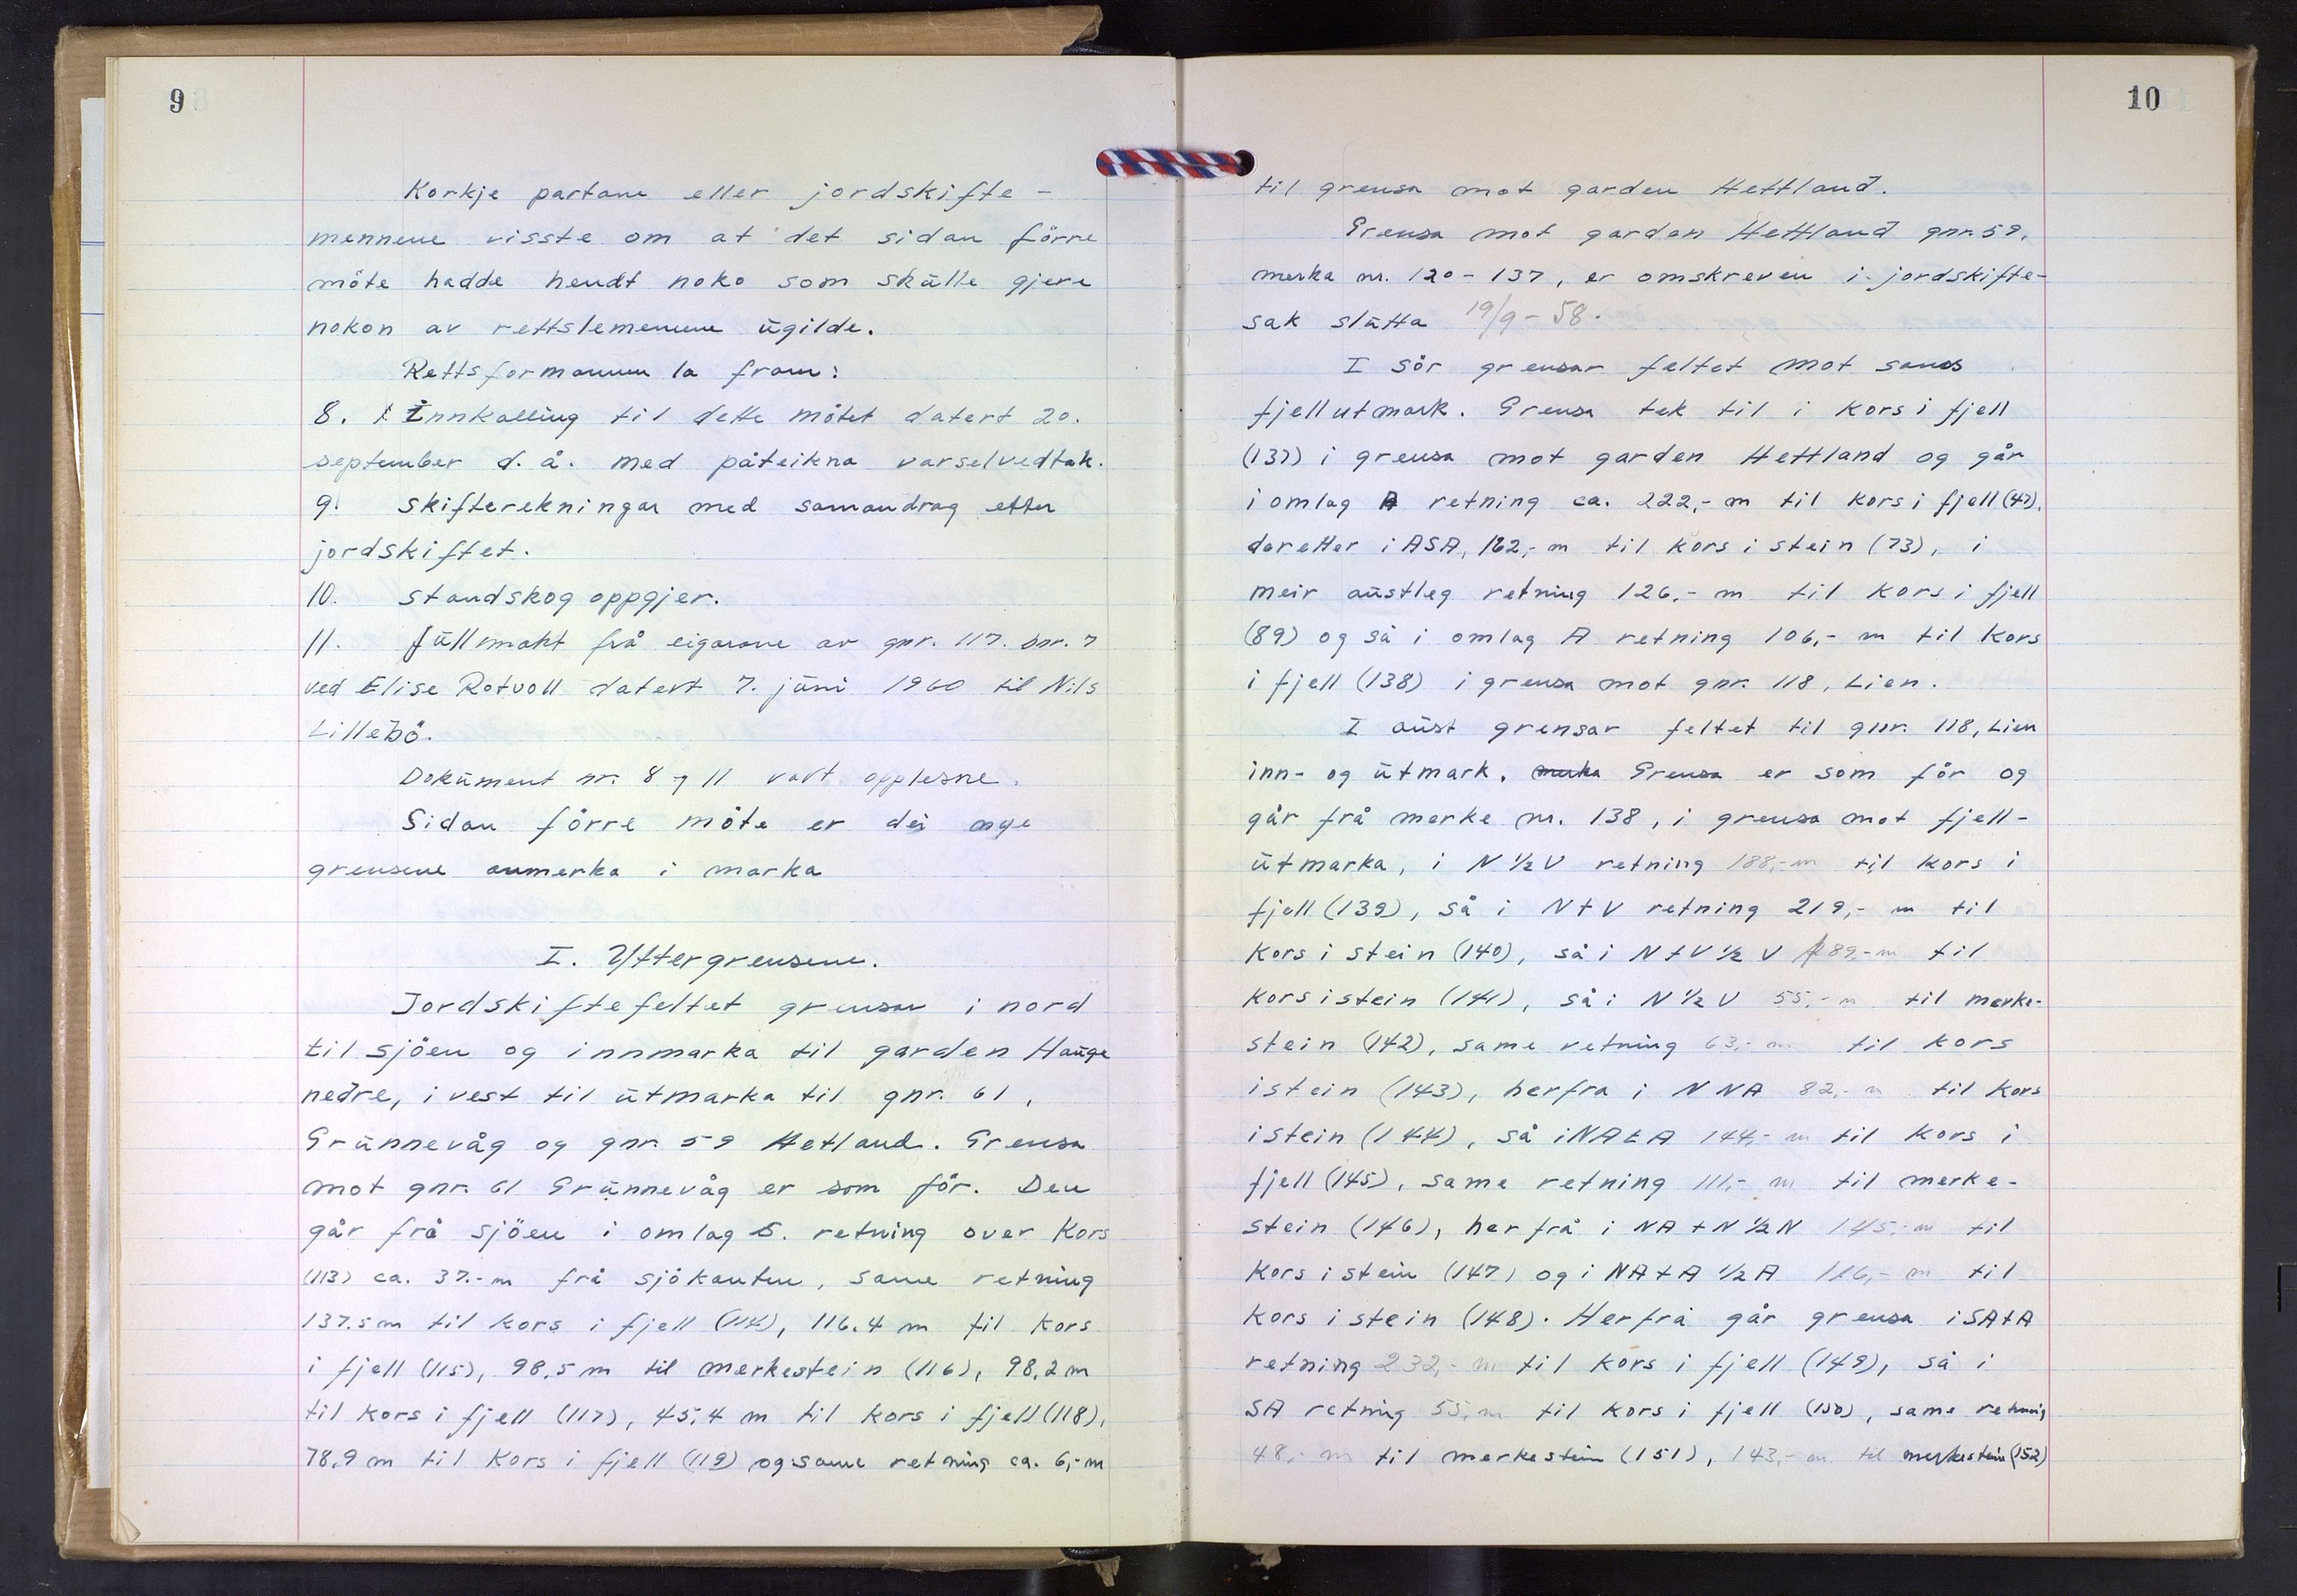 9
Korkje partane eller jordskifte-
mennene visste om at det sidan förre
möte hadde hendt noko som skulle gjere
nokon av rettslemenene ugilde.
Rettsformannen la fram:
8. Innkalling til dette mötet datert 20.
september d. å. med påteikna varselvedtak.
9. Skifterekningar med samandrag etter
jordskiftet.
10. Standskog oppgjer.
11. Fullmakt frå eigarane av gnr. 117. bnr. 7
ved Elise Rotvoll datert 7. juni 1960 til Nils
Lillebö.
Dokument nr. 8 og 11 vart opplesne.
Sidan förre möte er dei nye
grensene anmerka i marka
I. Yttergrensene.
Jordskiftefeltet grensar i nord
til sjöen og innmarka til garden Hauge
nedre, i vest til utmarka til gnr. 61,
Grunnevåg og gnr. 59 Hetland. Grensa
mot gnr. 61 Grunnevåg er som för. Den
går frå sjöen i omlag S. retning over Kors
(113) ca. 37.- m frå sjökanten, same retning
137.5 m til kors i fjell (114), 116.4 m til kors
i fjell (115), 98,5 m til merkestein (116), 98,2 m
til kors i fjell (117), 45,4 m til kors i fjell (118),
78,9 m til kors i fjell (119) og same retning ca. 6,- m
10
til grensa mot garden Hettland.
Grensa mot garden Hettland gnr. 59,
merka nr. 120-137, er omskreven i jordskifte-
sak slutta 19/9-58.
I sör grensar feltet mot sams
fjellutmark. Grensa tek til i kors i fjell
(137) i grensa mot garden Hettland og går
i omlag A retning ca. 222,- m til kors i fjell (47),
deretter i ASA, 162,- m til kors i stein (73), i
meir austleg retning 126,- m til kors i fjell
(89) og så i omlag A retning 106,- m til kors
i fjell (138) i grensa mot gnr. 118, Lien.
I aust grensar feltet til gnr. 118, Lien
inn- og utmark. merka Grensa er som för og
går frå merke nr. 138, i grensa mot fjell-
utmarka, i N 1/2 V retning 188,- m til kors i
fjell (139), så i N t V retning 219,- m til
kors i stein (140), så i N t V 1/2 V 89,- m til
kors i stein (141), så i N 1/2 V 55,- m til merke-
stein (142), same retning 63,- m til kors
i stein (143), herfra i NNA 82,- m til kors
i stein (144), så i NA t A 144,- m til kors i
fjell (145), same retning 111,- m til merke-
stein (146), herfrå i NA t N 1/2 N 145,- m til
kors i stein (147) og i NA t A 1/2 A 116,- m til
kors i stein (148). Herfrå går grensa i SA t A
retning 232,- m til kors i fjell (149), så i
SA retning 55,- m til kors i fjell (150), same retning
48,- m til merkestein (151), 143,- m til merkestein (152)